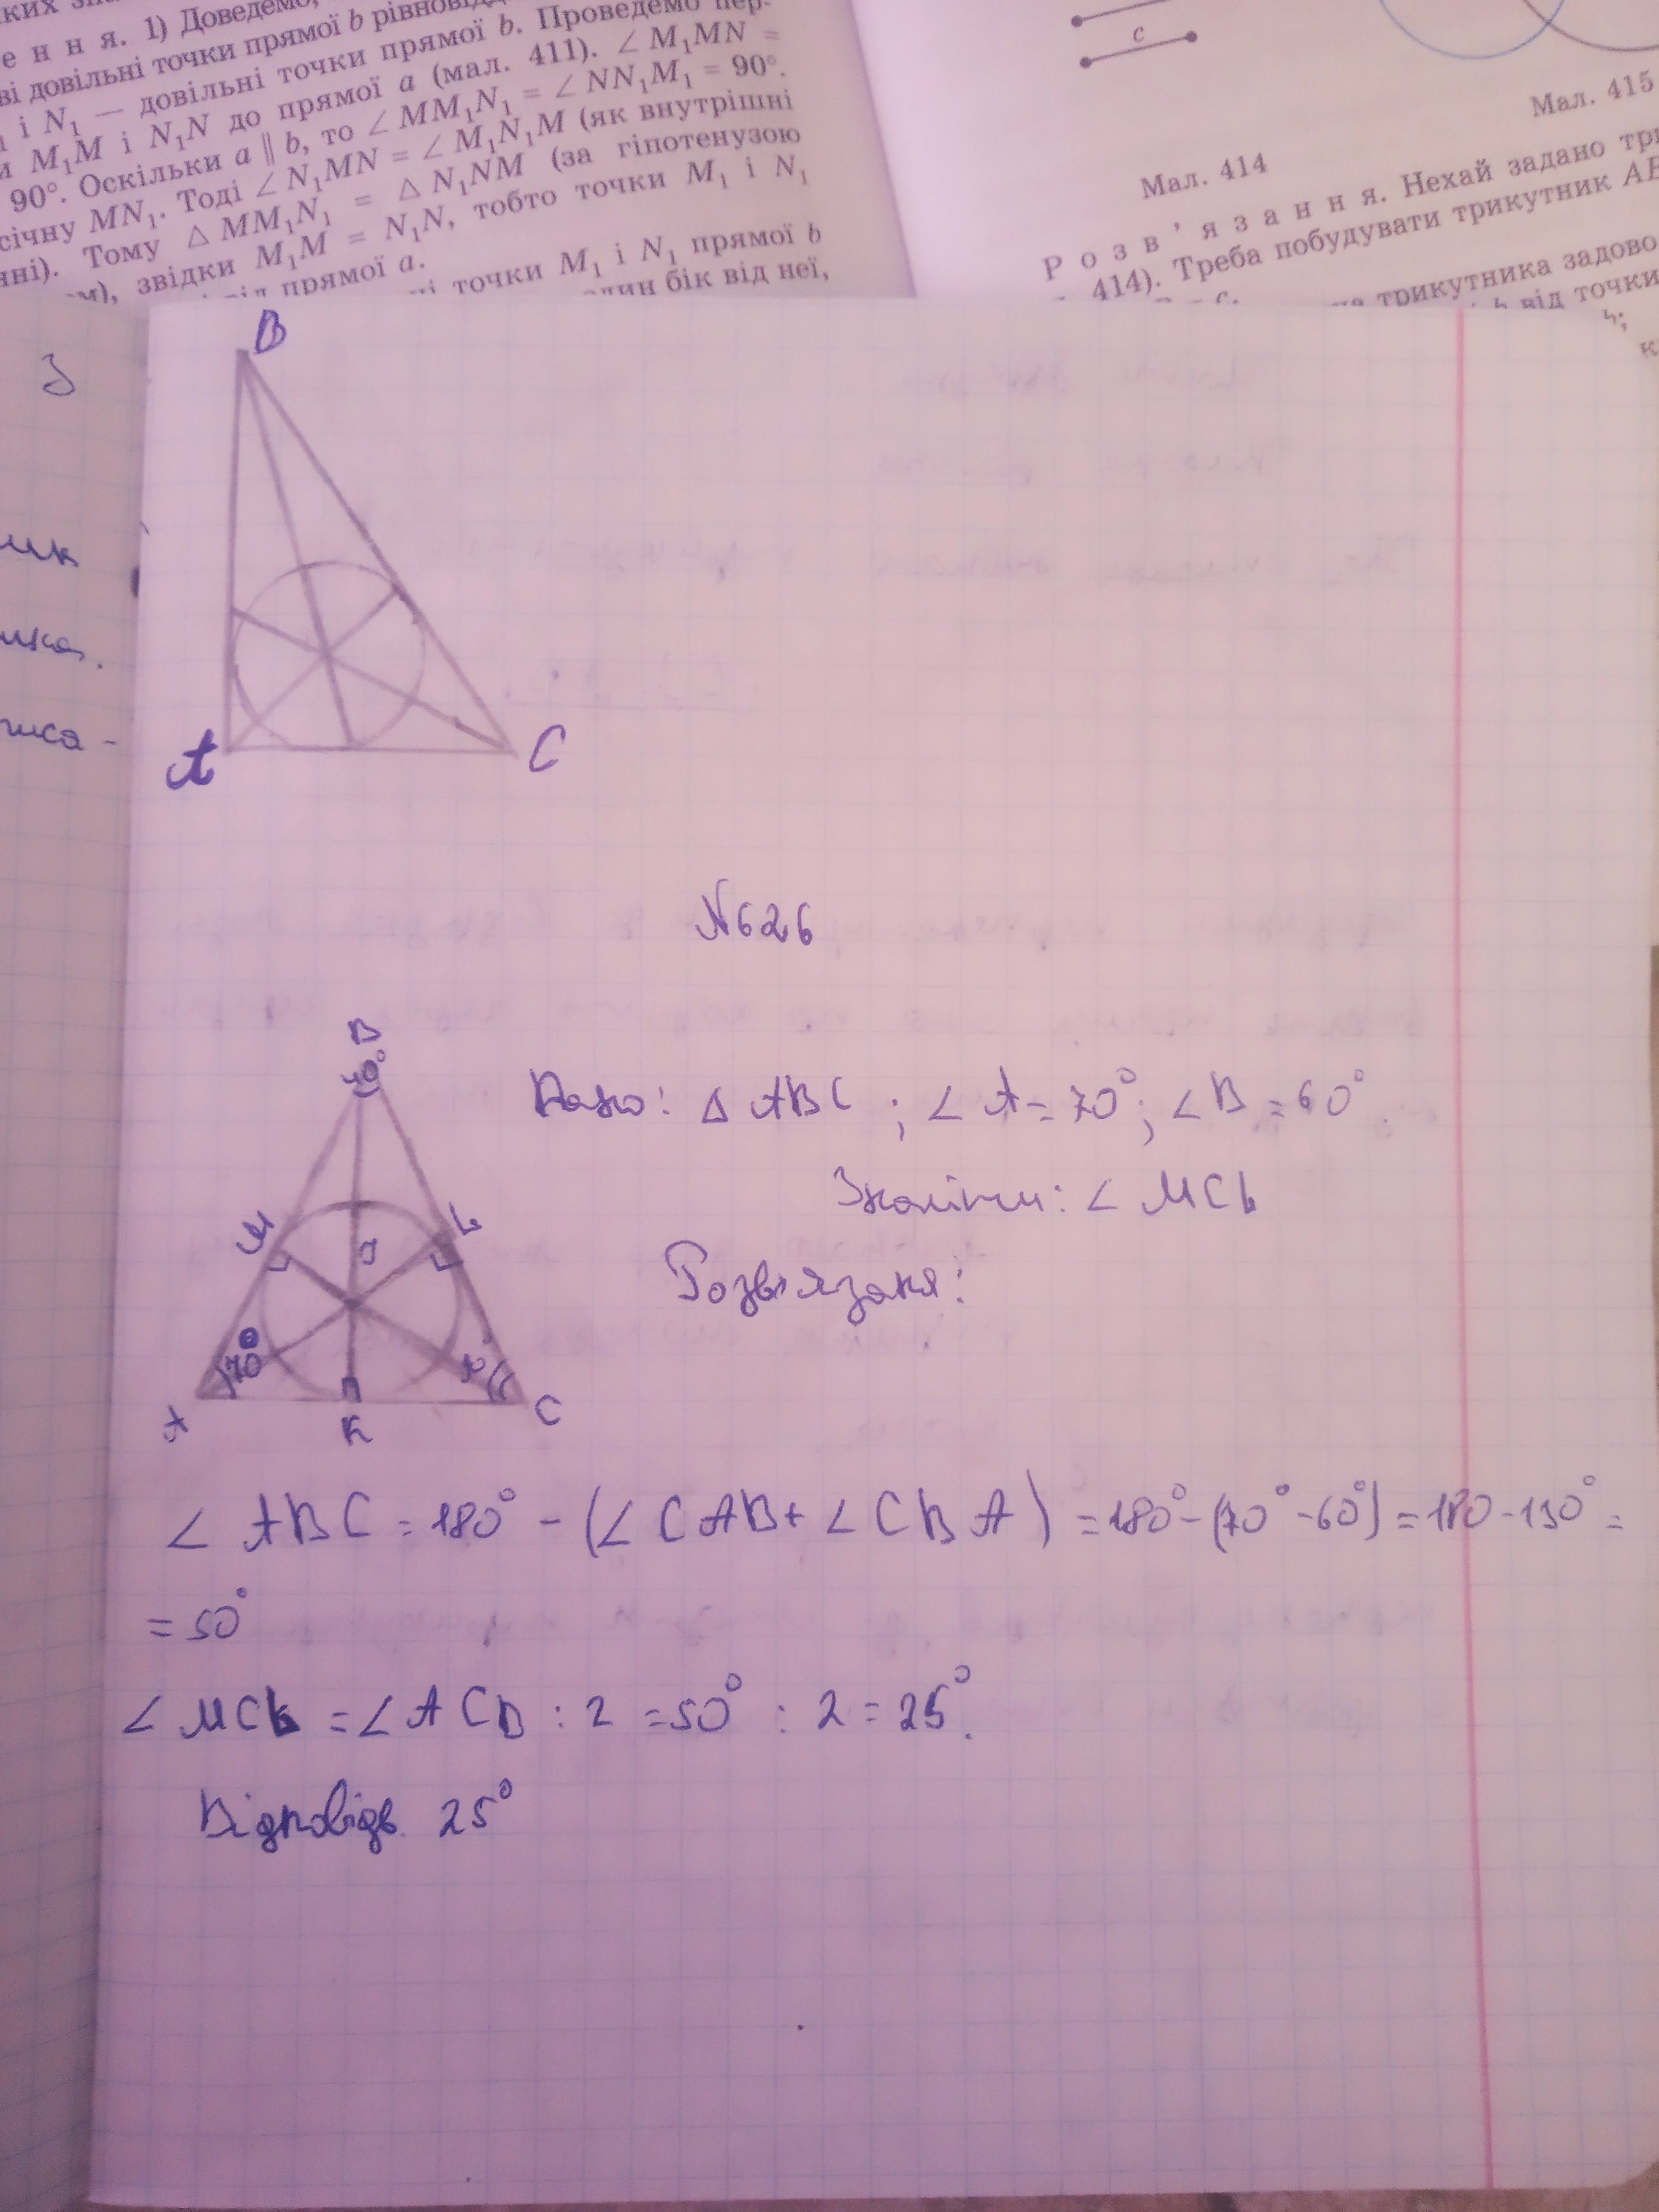 ких
е н н я. 1) Доведемо,
ві довільні точки прямої b рівновідд
і N₁ — довільні точки прямої b. Проведемо пер-
и M₁M і N₁N до прямої a (мал. 411). ∠ M₁MN =
90°. Оскільки a ∥ b, то ∠ MM₁N₁ = ∠ NN₁M₁ = 90°.
січну MN₁. Тоді ∠ N₁MN = ∠ M₁N₁M (як внутрішні
нні). Тому △ MM₁N₁ = △ N₁NM (за гіпотенузою
м), звідки M₁M = N₁N, тобто точки M₁ і N₁
від прямої a.
і точки M₁ і N₁ прямої b
один бік від неї,
c
Мал. 415
Мал. 414
Р о з в ’ я з а н н я. Нехай задано три
414). Треба побудувати трикутник AB
= c.
трикутника задово
b від точки
З
ик
ика.
писа-
B
A
C
N626
B
40°
M
L
J
70°
A
K
C
Дано: △ ABC ; ∠ A = 70° ; ∠ B = 60°.
Знайти: ∠ MCL
Розв'язаня:
∠ ABC = 180° - (∠ CAB + ∠ CBA) = 180° - (70° - 60°) = 180 - 130° =
= 50°
∠ MCL = ∠ ACB : 2 = 50° : 2 = 25°.
Відповідь. 25°